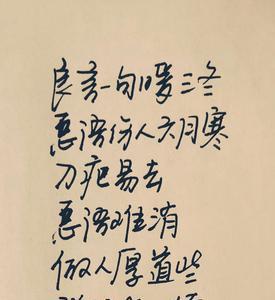 良言一句暖三冬
恶语伤人六月寒
刀疤易去
恶语难消
做人厚道些